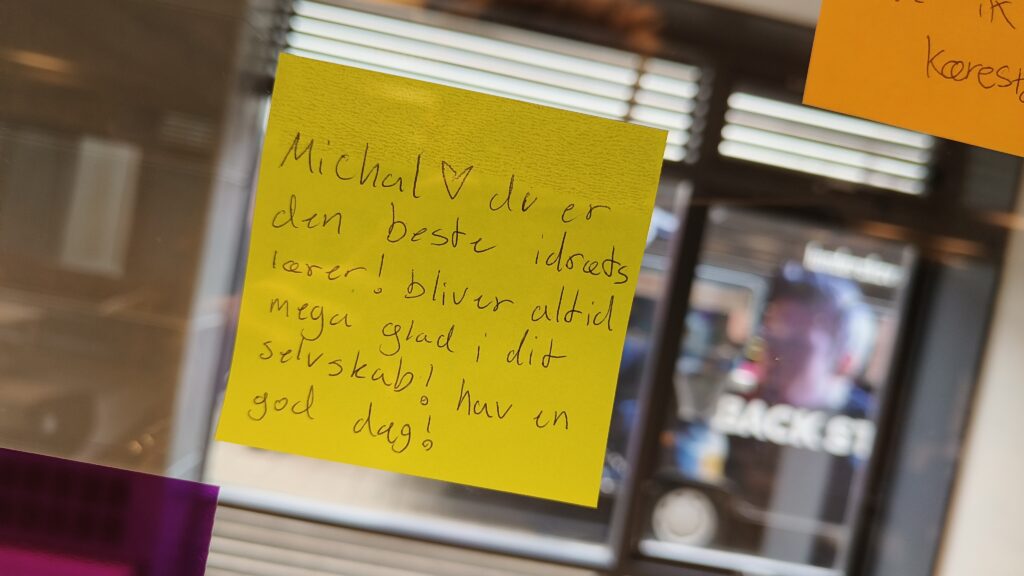 Michal ♡ du er
den beste idræts
lærer! bliver altid
mega glad i dit
selvskab! hav en
god dag!
ik
kærest
BACK ST